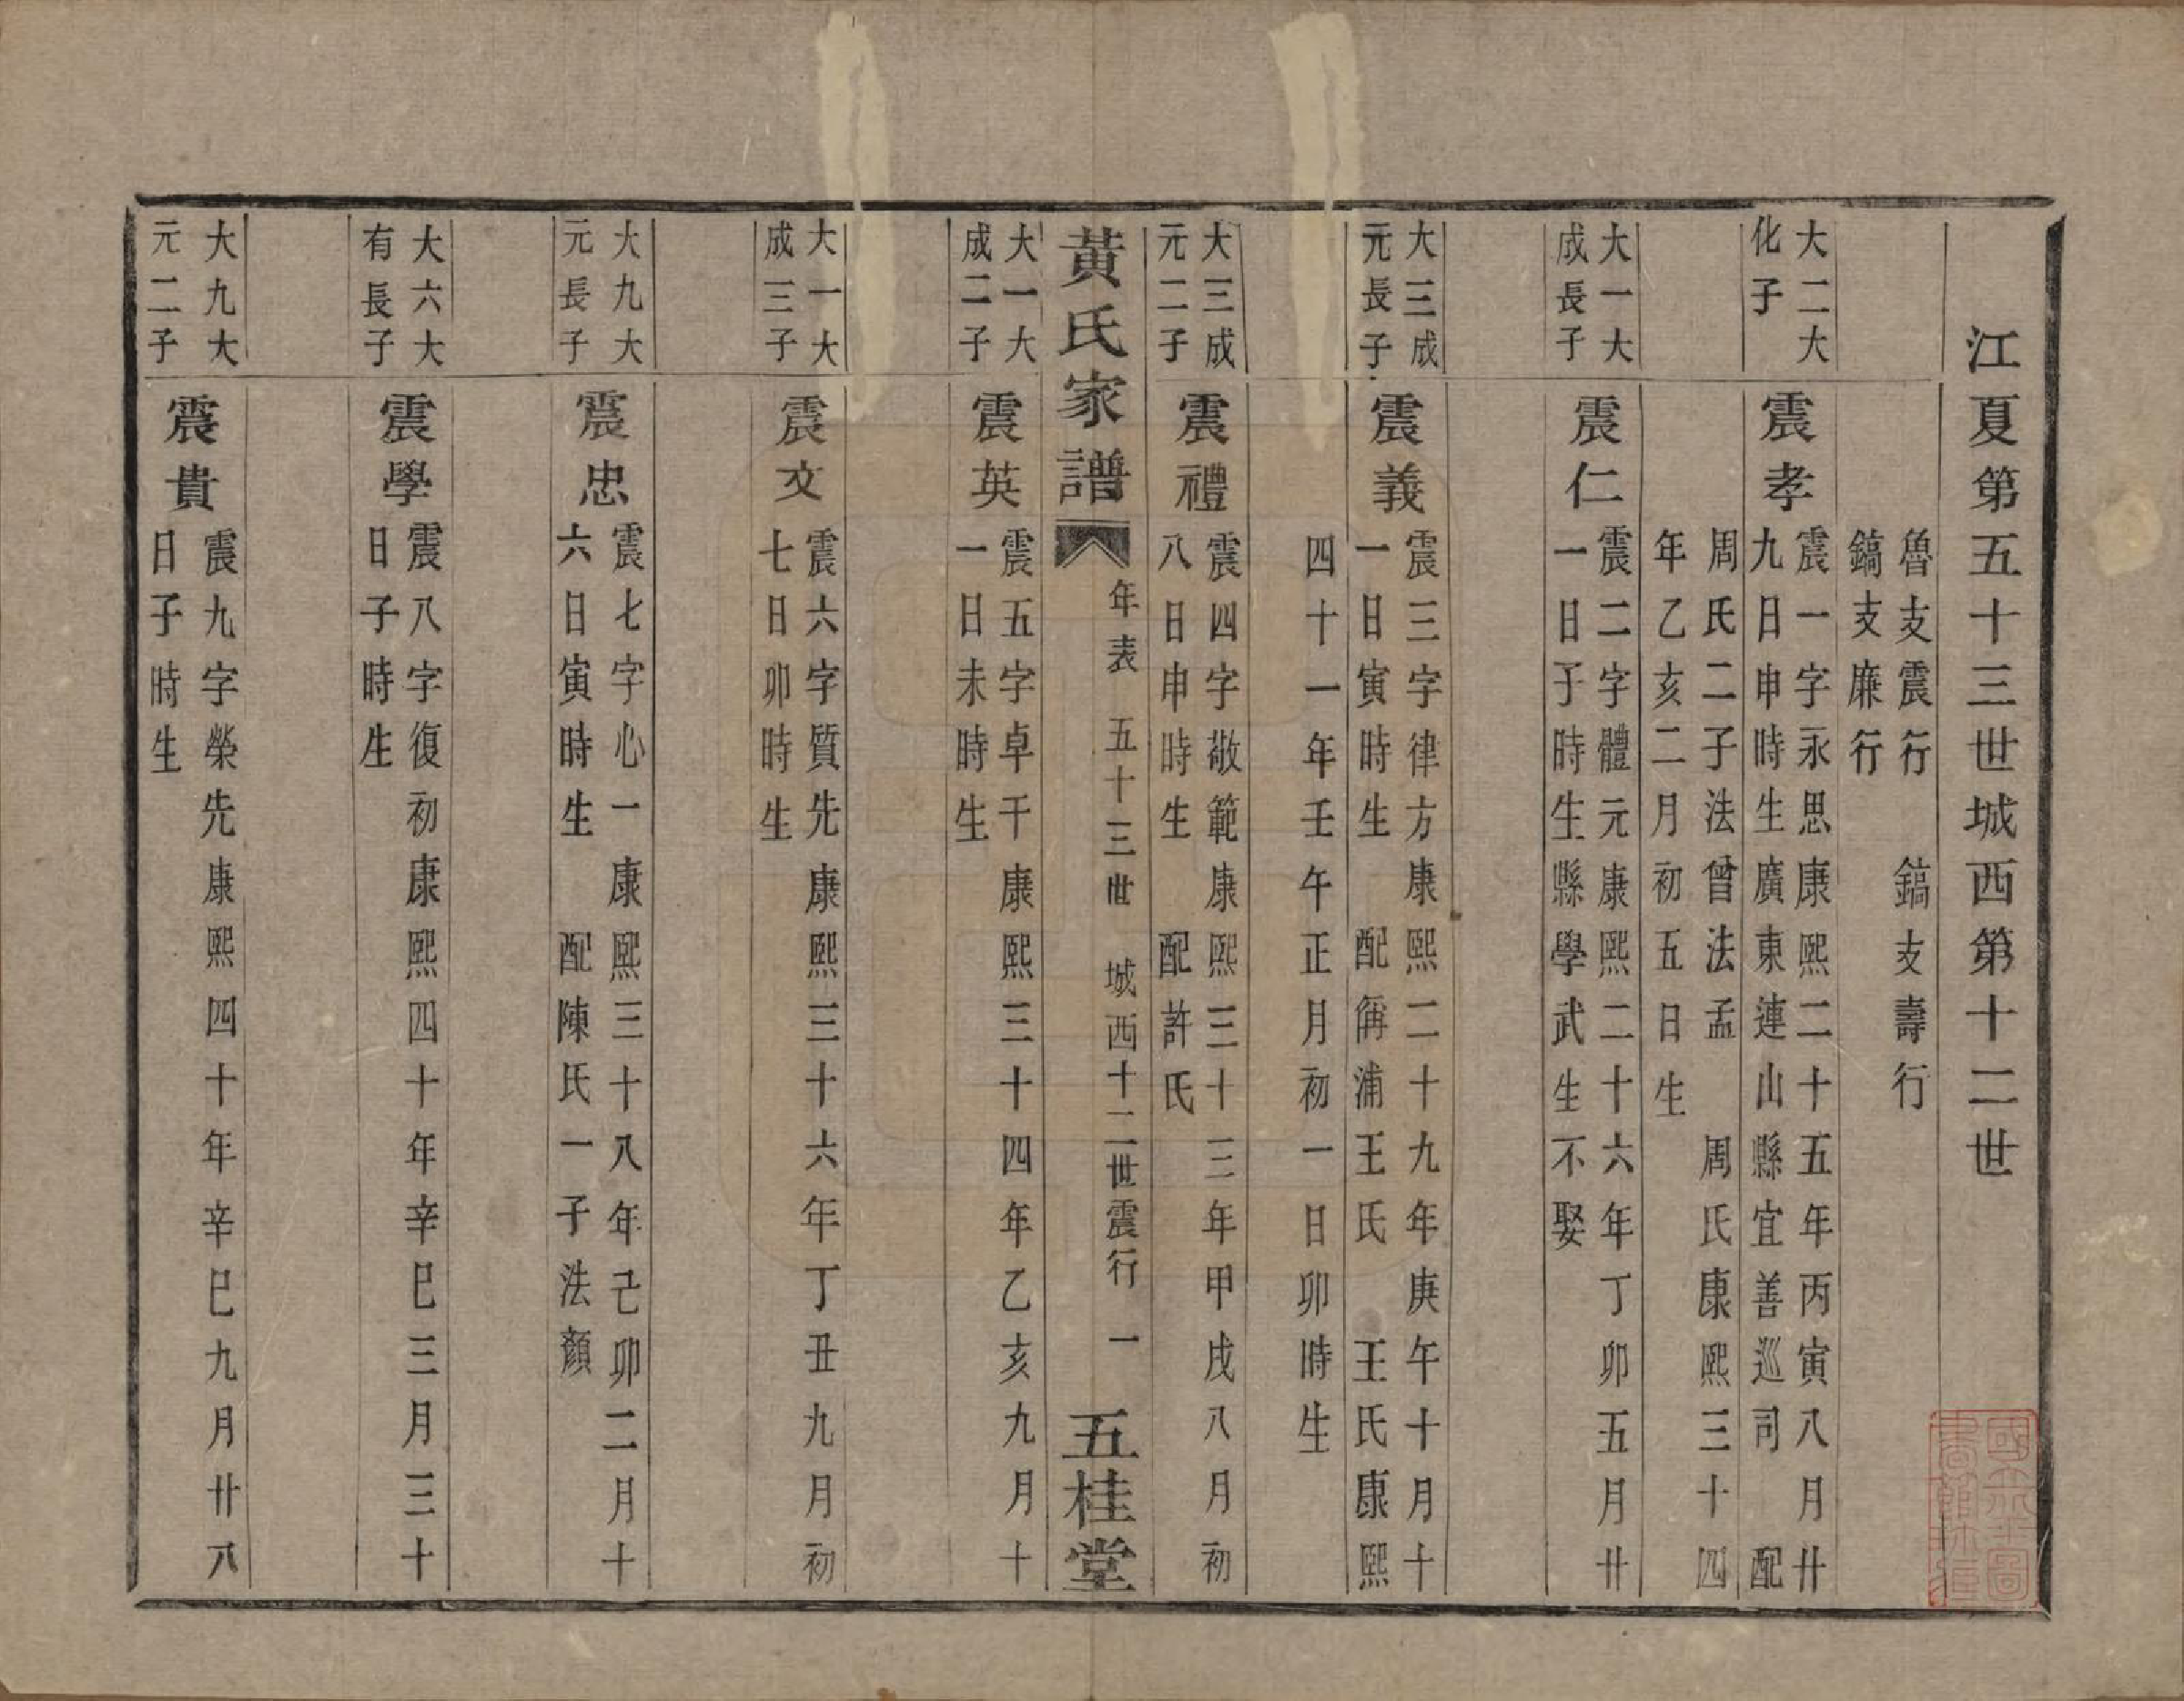 江夏第五十三世城西第十二世
魯支震行　鎬支壽行
鎬支廉行
大二大
化子
震孝
震一字永思康熙二十五年丙寅八月廿
九日申時生廣東連山縣宜善巡司　配
周氏二子法曾法孟　周氏康熙三十四
年乙亥二月初五日生
大一大
成長子
震仁
震二字體元康熙二十六年丁卯五月廿
一日子時生縣學武生不娶
大三成
元長子
震義
震三字律方康熙二十九年庚午十月十
一日寅時生　配衕浦王氏　王氏康熙
四十一年壬午正月初一日卯時生
大三成
元二子
震禮
震四字敬範康熙三十三年甲戌八月初
八日申時生　配許氏
黃氏家譜
年表　五十三世　城西十二世震行　一
五桂堂
大一大
成二子
震英
震五字卓千康熙三十四年乙亥九月十
一日未時生
大一大
成三子
震文
震六字質先康熙三十六年丁丑九月初
七日卯時生
大九大
元長子
震忠
震七字心一康熙三十八年己卯二月十
六日寅時生　配陳氏一子法顏
大六大
有長子
震學
震八字復初康熙四十年辛巳三月三十
日子時生
大九大
元二子
震貴
震九字榮先康熙四十年辛巳九月廿八
日子時生